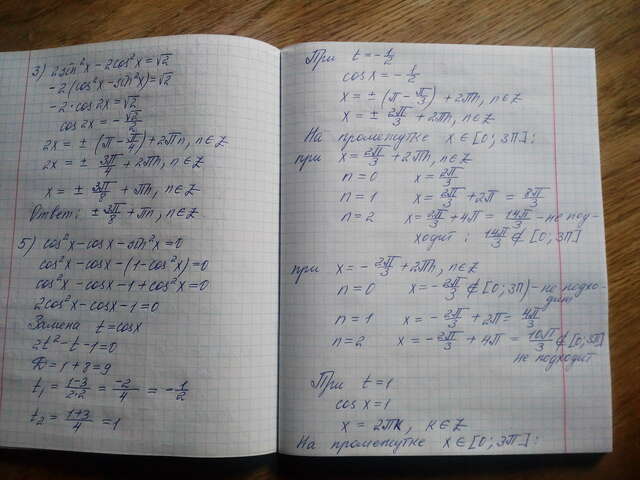 3) 2sin²x - 2cos²x = √2
-2(cos²x - sin²x) = √2
-2·cos2x = √2
cos2x = -√2/2
2x = ± (π - π/4) + 2πn, n∈Z
2x = ± 3π/4 + 2πn, n∈Z
x = ± 3π/8 + πn, n∈Z
Ответ: ± 3π/8 + πn, n∈Z
5) cos²x - cosx - sin²x = 0
cos²x - cosx - (1 - cos²x) = 0
cos²x - cosx - 1 + cos²x = 0
2cos²x - cosx - 1 = 0
Замена t = cosx
2t² - t - 1 = 0
Д = 1 + 8 = 9
t₁ = (1-3)/(2·2) = -2/4 = -1/2
t₂ = (1+3)/4 = 1
При t = -1/2
cosx = -1/2
x = ± (π - π/3) + 2πn, n∈Z
x = ± 2π/3 + 2πn, n∈Z
На промежутке x∈[0; 3π]:
при x = 2π/3 + 2πn, n∈Z
n = 0 x = 2π/3
n = 1 x = 2π/3 + 2π = 8π/3
n = 2 x = 2π/3 + 4π = 14π/3 - не под-
ходит; 14π/3 ∉ [0; 3π]
при x = - 2π/3 + 2πn, n∈Z
n = 0 x = - 2π/3 ∉ [0; 3π) - не подхо-
дит
n = 1 x = - 2π/3 + 2π = 4π/3
n = 2 x = - 2π/3 + 4π = 10π/3 ∉ [0; 3π]
не подходит
При t = 1
cosx = 1
x = 2πk, k∈Z
На промежутке x∈[0; 3π]: